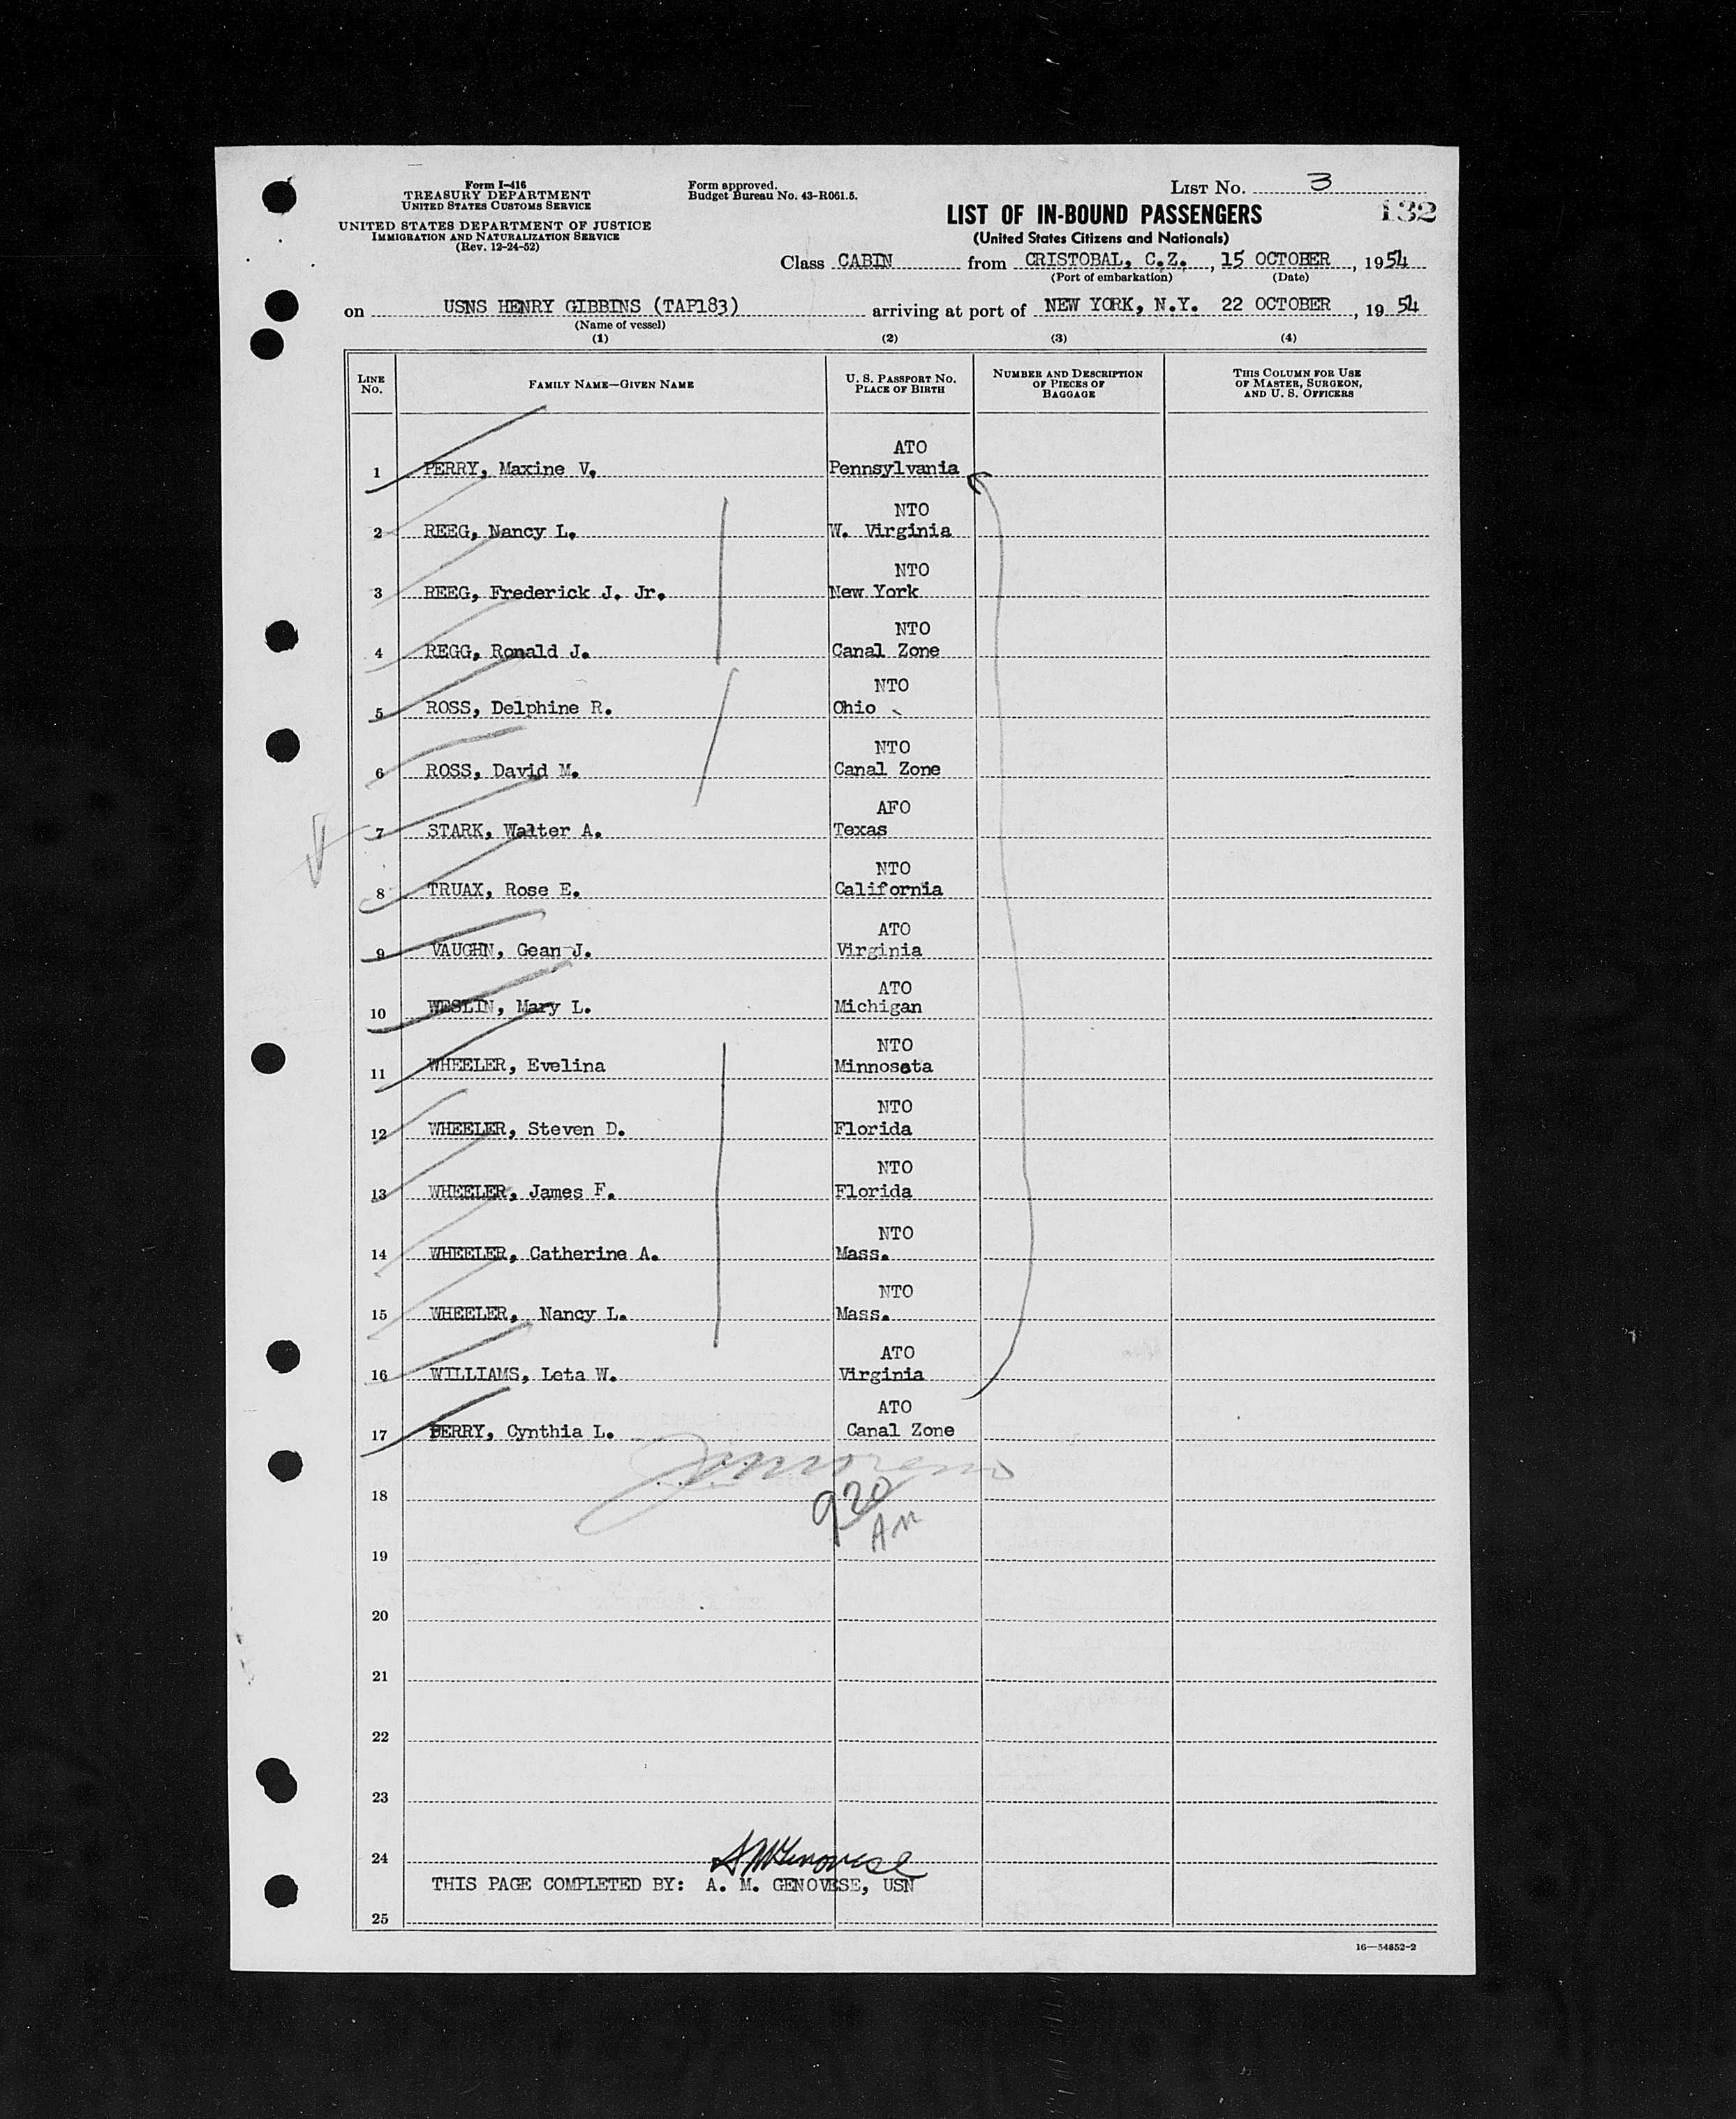 Form I-416
TREASURY DEPARTMENT
UNITED STATES CUSTOMS SERVICE
UNITED STATES DEPARTMENT OF JUSTICE
IMMIGRATION AND NATURALIZATION SERVICE
(Rev. 12-24-52)
Form approved.
Budget Bureau No. 43-R061.5.
LIST NO. 3
132
LIST OF IN-BOUND PASSENGERS
(United States Citizens and Nationals)
Class CABIN from CRISTOBAL, C.Z., 15 OCTOBER, 1954
(Port of embarkation) (Date)
on USNS HENRY GIBBINS (TAP183) arriving at port of NEW YORK, N.Y. 22 OCTOBER, 1954
(Name of vessel)
(1) (2) (3) (4)
LINE NO. FAMILY NAME—GIVEN NAME U. S. PASSPORT NO. PLACE OF BIRTH NUMBER AND DESCRIPTION OF PIECES OF BAGGAGE THIS COLUMN FOR USE OF MASTER, SURGEON, AND U. S. OFFICERS
ATO
1 PERRY, Maxine V. Pennsylvania
NTO
2 REEG, Nancy L. W. Virginia
NTO
3 REEG, Frederick J. Jr. New York
NTO
4 REGG, Ronald J. Canal Zone
NTO
5 ROSS, Delphine R. Ohio
NTO
6 ROSS, David M. Canal Zone
AFO
7 STARK, Walter A. Texas
NTO
8 TRUAX, Rose E. California
ATO
9 VAUGHN, Gean J. Virginia
ATO
10 WESLIN, Mary L. Michigan
NTO
11 WHEELER, Evelina Minnoseta
NTO
12 WHEELER, Steven D. Florida
NTO
13 WHEELER, James F. Florida
NTO
14 WHEELER, Catherine A. Mass.
NTO
15 WHEELER, Nancy L. Mass.
ATO
16 WILLIAMS, Leta W. Virginia
ATO
17 PERRY, Cynthia L. Canal Zone
18
920
AM
19
20
21
22
23
24
A M Genovese
THIS PAGE COMPLETED BY: A. M. GENOVESE, USN
25
16—54852-2